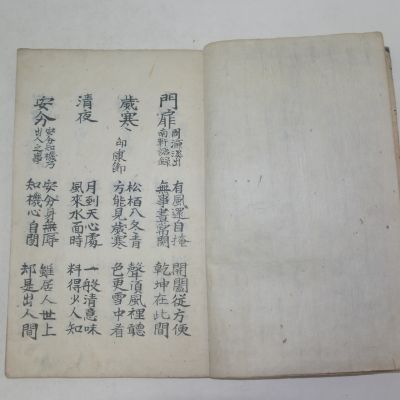 門扉
周濂溪出
南軒語錄
有風還自掩
無事晝常關
開闔從方便
乾坤在此間
歲寒
邵康節
松栢入冬青
方能見歲寒
聲須風裡聽
色更雪中看
清夜
月到天心處
風來水面時
一般清意味
料得少人知
安分
安分知機乃
出人之事
安分身無辱
知機心自閑
雖居人世上
却是出人間